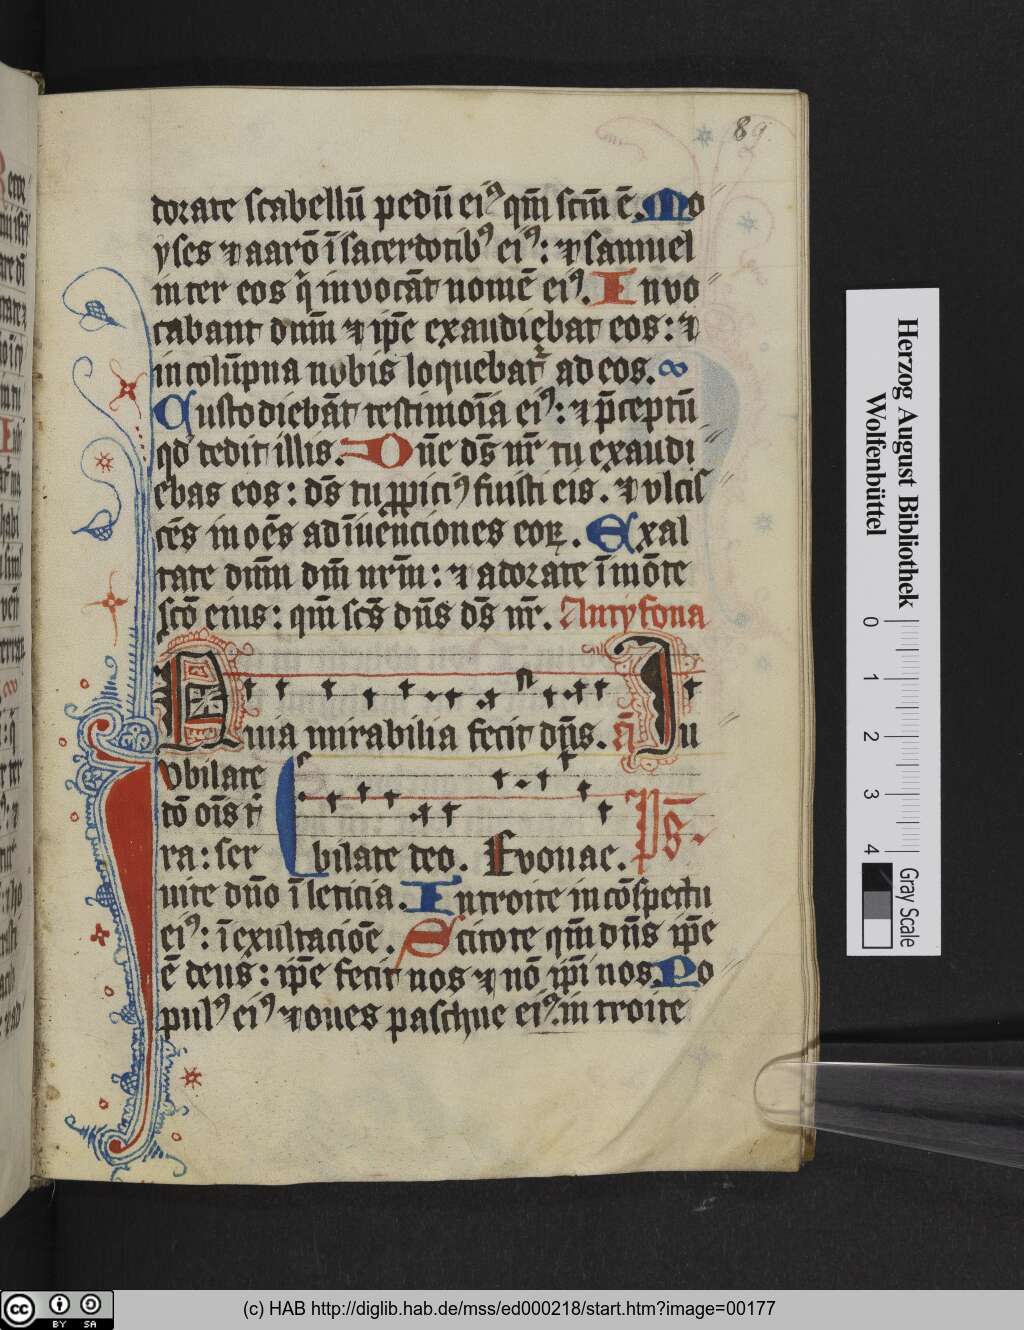 89.
dorate scabellū pedū ei⁹ qm̄ scm̄ ē. Mo
yses ⁊ aarō ī sacerdotib⁹ ei⁹: ⁊ samuel
inter eos q̇ invocāt nomē ei⁹. Invo
cabant dnm̄ ⁊ ip̄e exaudiebat eos: ⁊
in colūpna nubis loquebat᷑ ad eos.
Custodiebāt testimoīa ei⁹: ⁊ p̄ceptū
qd̄ dedit illis. Dn̄e ds̄ nr̄ tu exaudi
ebas eos: ds̄ tu ꝓpici⁹ fuisti eis. ⁊ vlcis
cēs in oēs adīuenciones eoꝝ. Exal
tate dnm̄ dm̄ nrm̄: ⁊ adorate ī mōte
scō eius: qm̄ scs̄ dn̄s ds̄ nr̄. Antyfona
Quia mirabilia fecit dn̄s. ā Iu
Iubilate
dō oīs t̄
bilate deo. Evouae. Ps̄.
ra: ser
uite dn̄o ī leticia. Introite in cōspectu
ei⁹: ī exultaciōe. Scitote qm̄ dn̄s ip̄e
ē deus: ip̄e fecit nos ⁊ nō ip̄i nos. Po
pul⁹ ei⁹ ⁊ oues paschue ei⁹. introite
Herzog August Bibliothek
Wolfenbüttel
0 1 2 3 4
Gray Scale
cc BY SA
(c) HAB http://diglib.hab.de/mss/ed000218/start.htm?image=00177